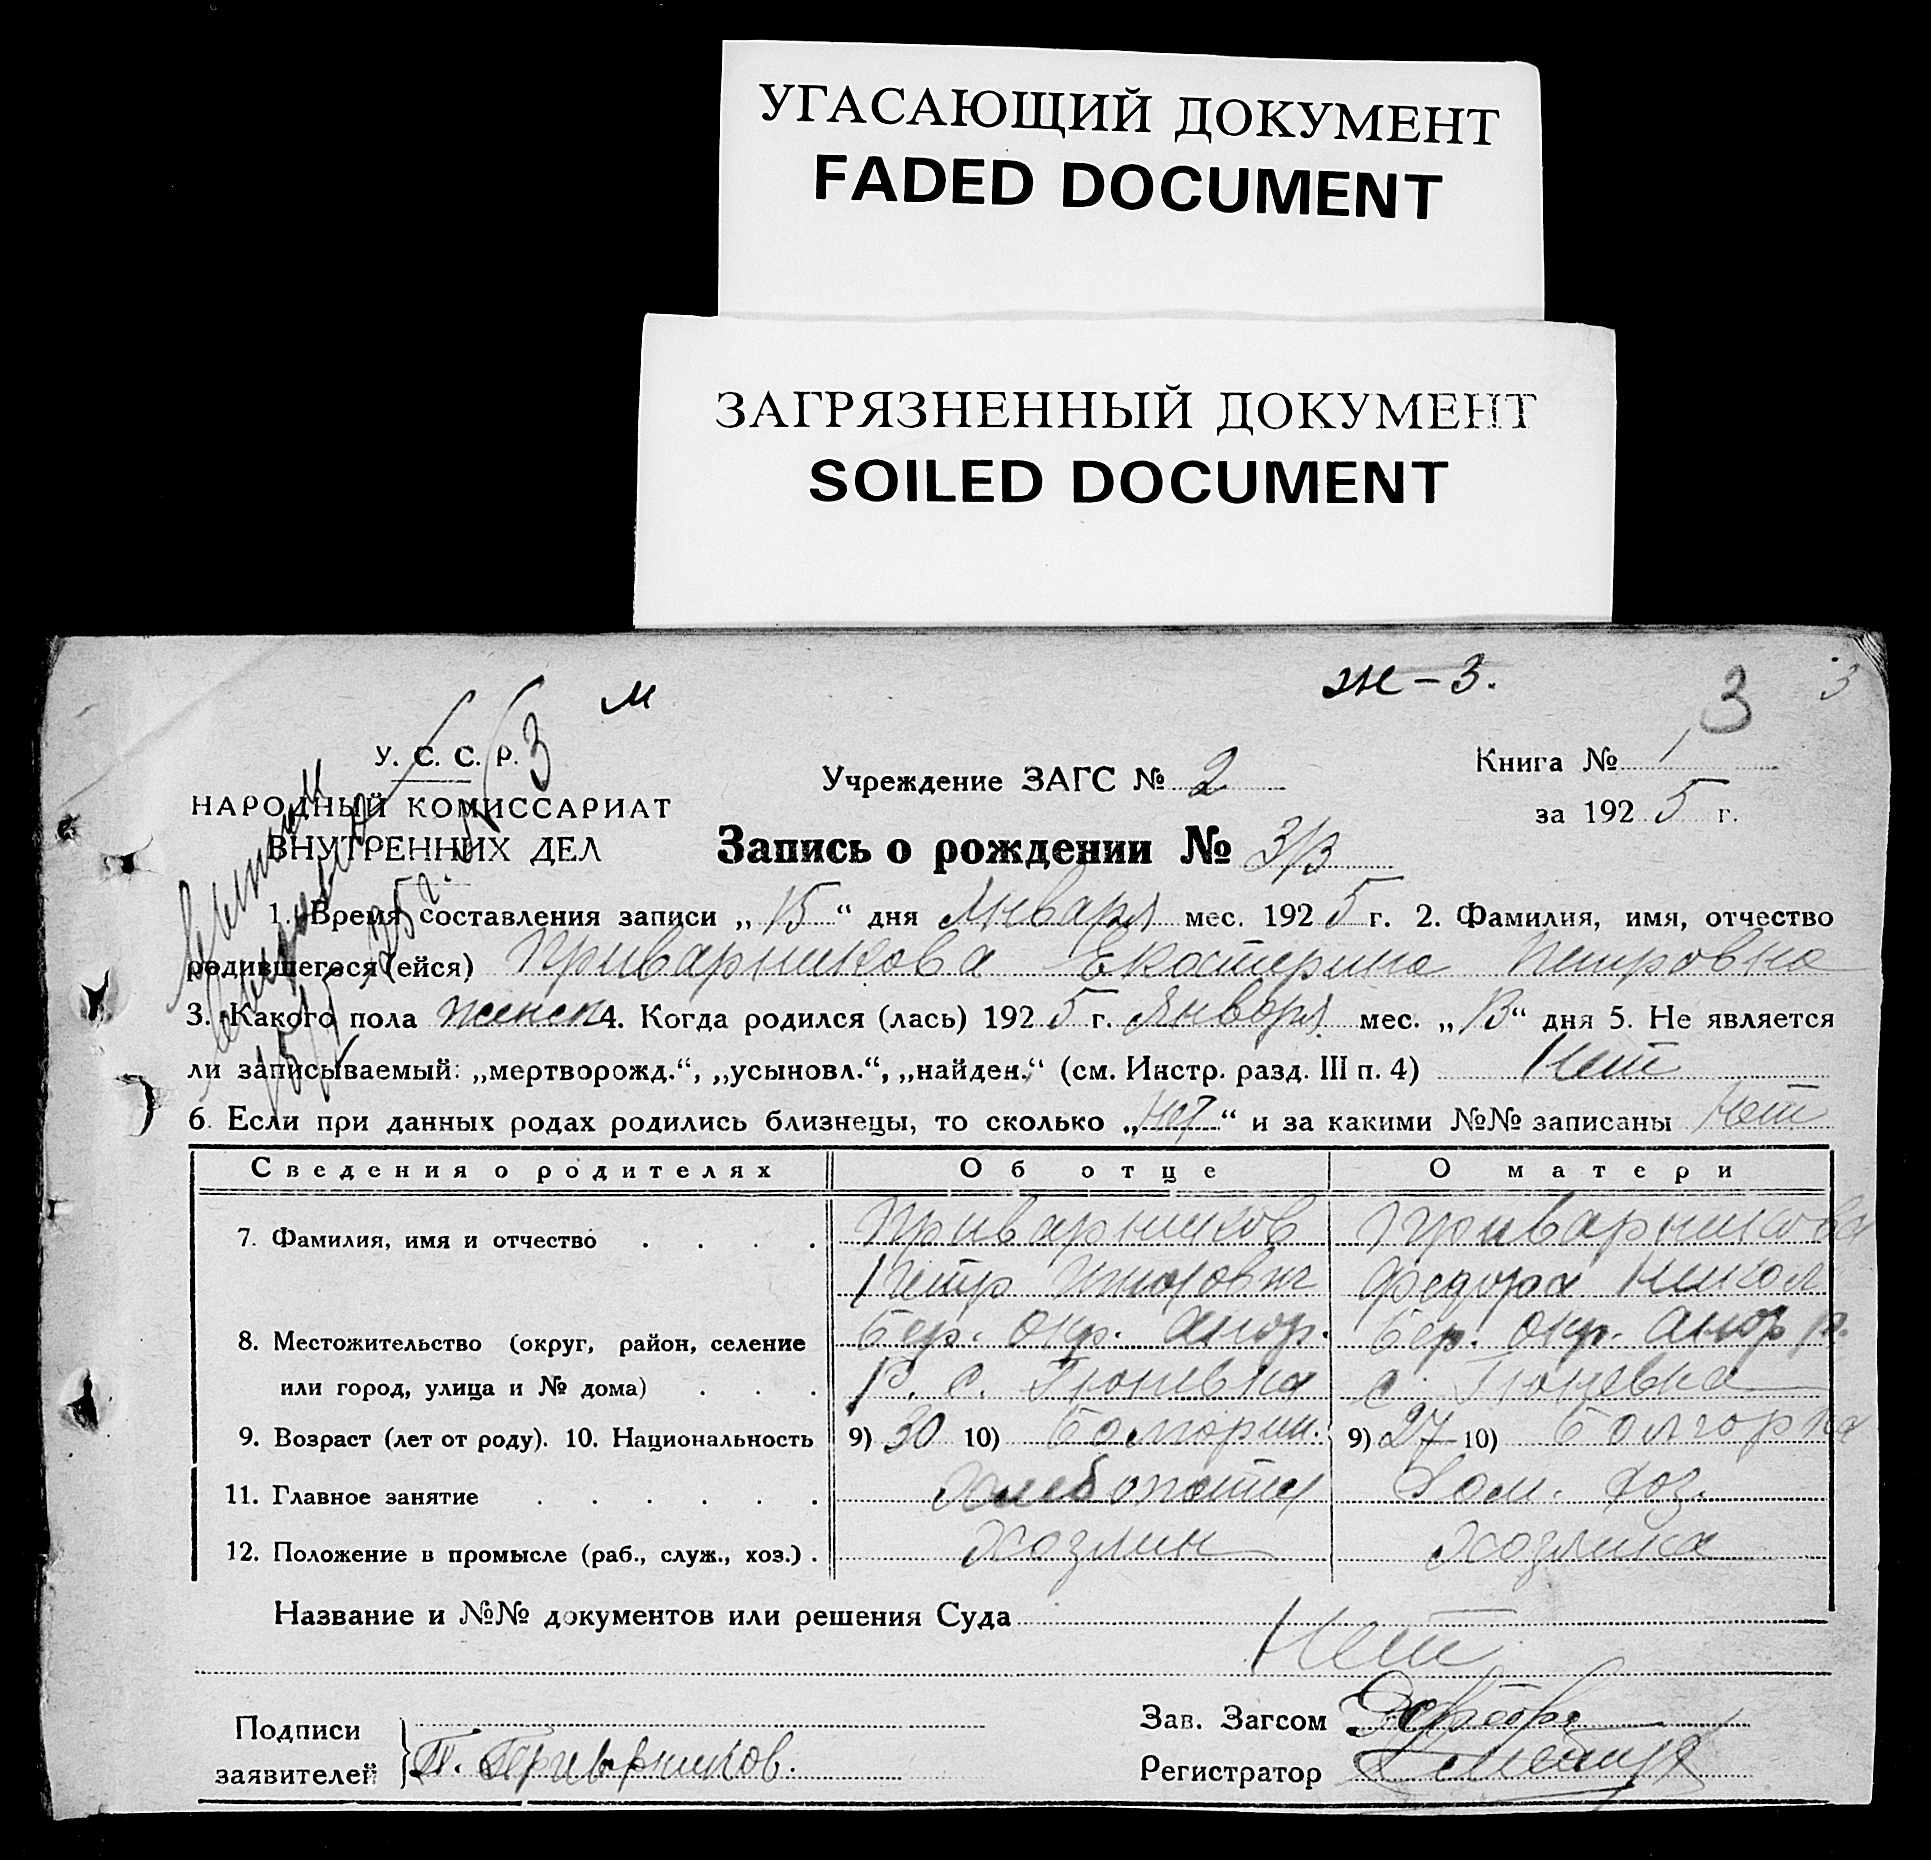 УГАСАЮЩИЙ ДОКУМЕНТ
FADED DOCUMENT
ЗАГРЯЗНЕННЫЙ ДОКУМЕНТ
SOILED DOCUMENT
м
ж – 3.
3
3
У. С. С. Р.
3
НАРОДНЫЙ КОМИССАРИАТ
ВНУТРЕННИХ ДЕЛ
Учреждение ЗАГС № 2
Книга № 1
за 192 5 г.
Запись о рождении № 3/3
1. Время составления записи „ 15 “ дня Января мес. 192 5 г. 2. Фамилия, имя, отчество
родившегося (ейся) Приварникова Екатерина Петровна
3. Какого пола женск 4. Когда родился (лась) 192 5 г. Января мес. „ 13 “ дня 5. Не является
ли записываемый: „мертворожд.“, „усыновл.“, „найден.“ (см. Инстр. разд. III п. 4) Нет
6. Если при данных родах родились близнецы, то сколько „ нет “ и за какими №№ записаны Нет
Сведения о родителях Об отце О матери
7. Фамилия, имя и отчество . . . . Приварников Приварникова
Петр Федора Никол
Бер. окр. Анор. Бер. окр. Анор р.
8. Местожительство (округ, район, селение
или город, улица и № дома) . . . Р. с. Гюневка с. Гюневка
9. Возраст (лет от роду). 10. Национальность 9) 30 10) Болгорин. 9) 27 10) Болгорка
11. Главное занятие . . . . . . Хлебопашец Дом. хоз.
12. Положение в промысле (раб., служ., хоз.) . Хозяин Хозяйка
Название и №№ документов или решения Суда
Нет
Подписи
заявителей П. Приварников.
Зав. Загсом
Регистратор